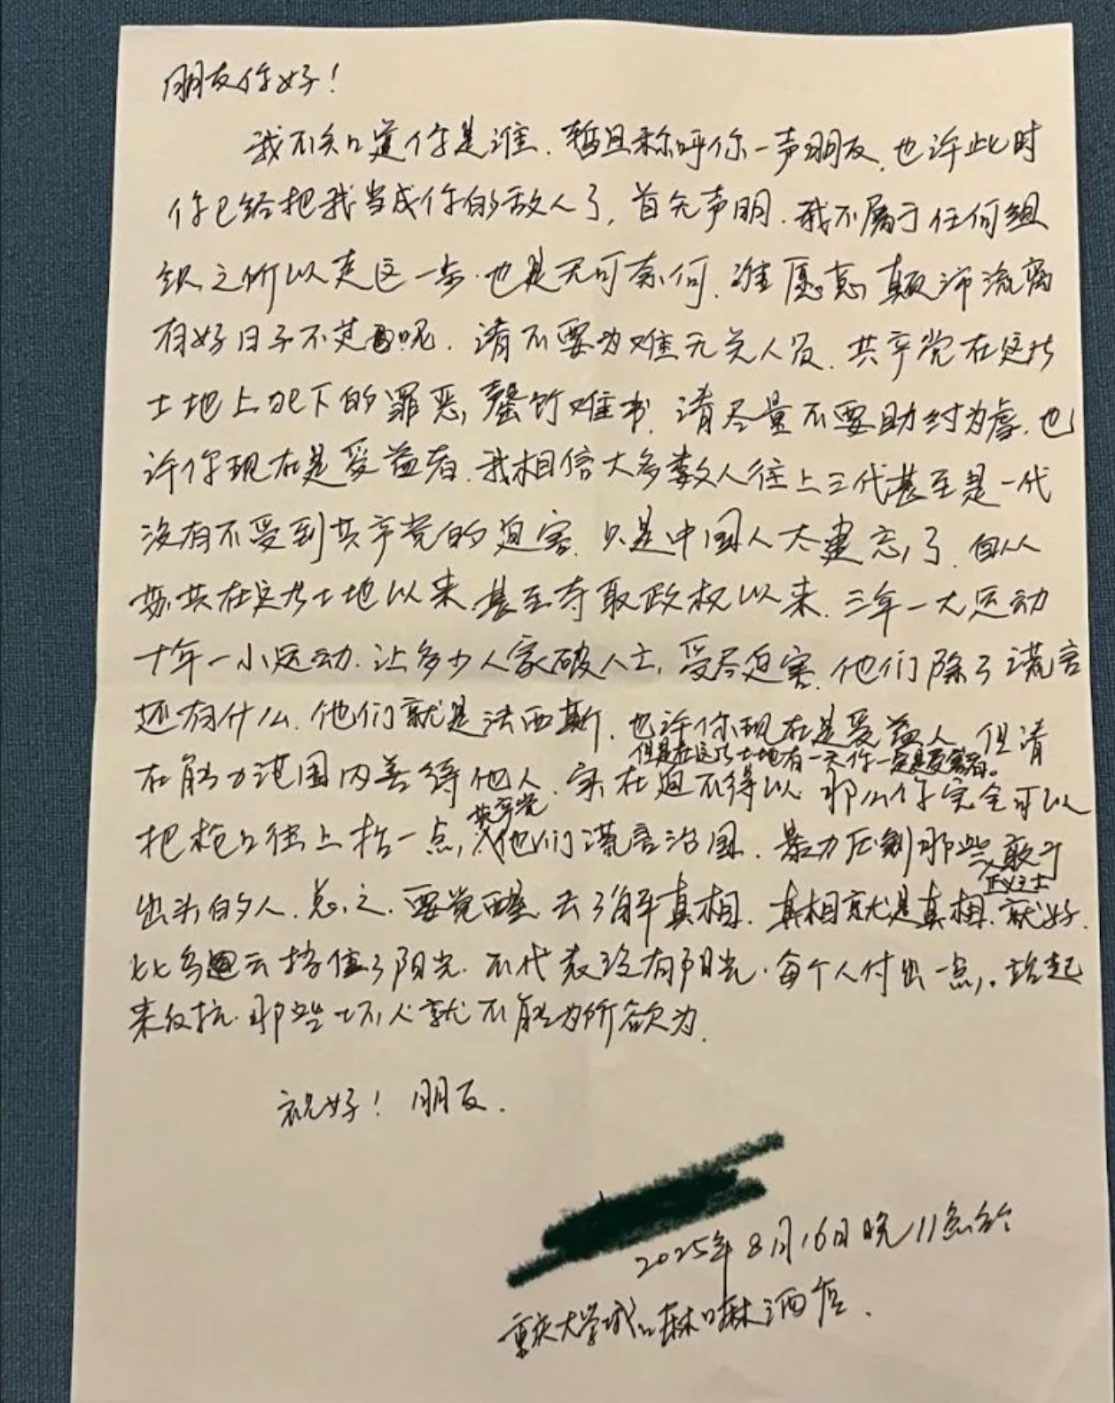 朋友你好！
我不知道你是谁．暂且称呼你一声朋友．也许此时
你已给把我当成你的敌人了，首先声明．我不属于任何组
织之所以走这一步．也是无可奈何．谁愿意颠沛流离
有好日子不过呢．请不要为难无关人员．共产党在这片
土地上犯下的罪恶，罄竹难书．请尽量不要助纣为虐．也
许你现在是受益者．我相信大多数人往上三代甚至是一代
没有不受到共产党的迫害．只是中国人太健忘了．自从
苏共在这片土地以来甚至夺取政权以来．三年一大运动
十年一小运动．让多少人家破人亡，受尽迫害．他们除了谎言
还有什么．他们就是法西斯．也许你现在是受益人 但请
但是在这片土地有一天你一定是受害者。
在能力范围内善待他人．实在迫不得以 那么你完全可以
共产党
把枪口往上抬一点，他们谎言治国．暴力压制那些敢于
正义之士
出头的人．总之．要觉醒．去了解真相．真相就是真相．就好
比乌云挡住了阳光．不代表没有阳光．每个人付出一点，．站起
来反抗．那些坏人就不能为所欲为．
祝好！朋友．
2025年8月16日晚11点
重庆大学城口麻口麻酒店．